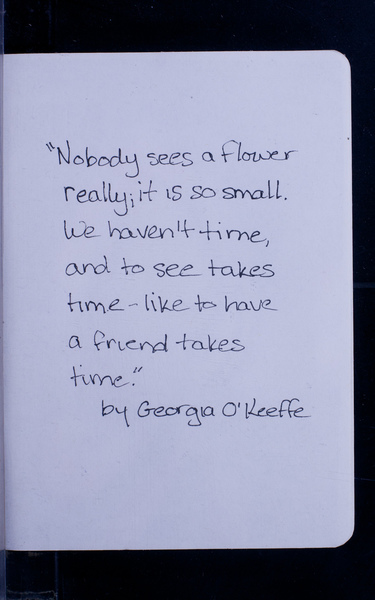 "Nobody sees a flower
really; it is so small.
We haven't time,
and to see takes
time - like to have
a friend takes
time."
by Georgia O'Keeffe